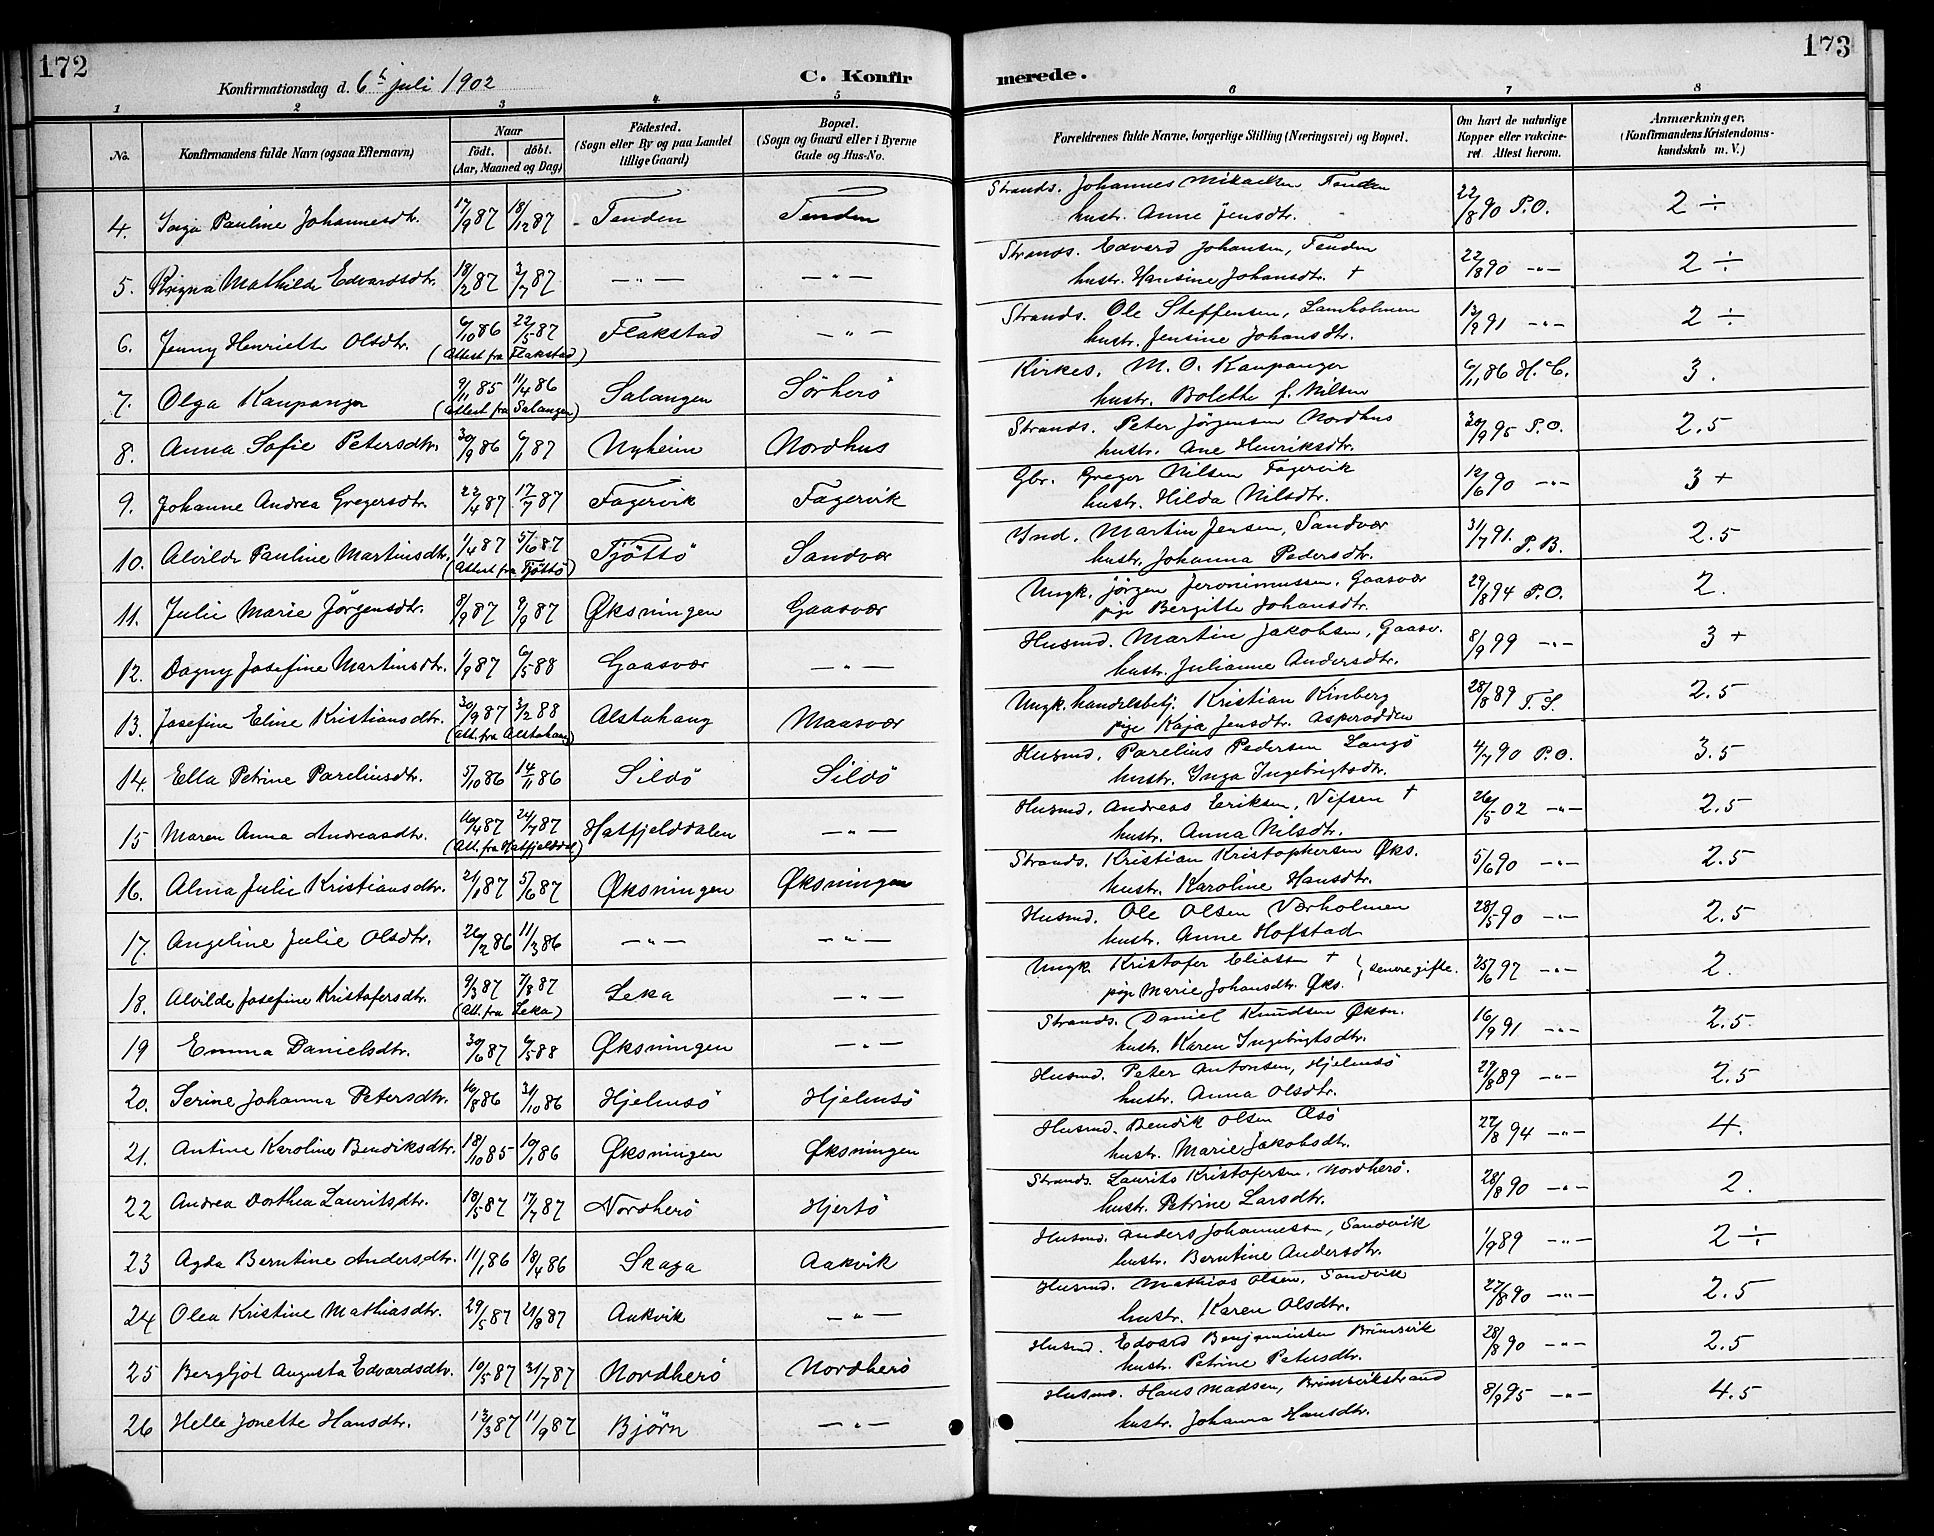 172
Konfirmationsdag d. 6te juli 1902
C. Konfir
merede.
173
1 2 3 4 5 6 7 8
No.
Konfirmandens fulde Navn (ogsaa Efternavn)
Naar
födt. döbt.
(Aar, Maaned og Dag)
Födested.
(Sogn eller By og paa Landet
tillige Gaard)
Bopæl.
(Sogn og Gaard eller i Byerne
Gade og Hus-No.
Forældrenes fulde Navne, borgerlige Stilling (Næringsvei) og Bopæl.
Om havt de naturlige
Kopper eller vakcine-
ret. Attest herom.
Anmærkninger,
(Konfirmandens Kristendoms-
kundskab m. V.)
4. Inga Pauline Johannesdtr. 17/9 87 18/12 87 Tenden Tenden Strands. Johannes Mikaelsen Tenden 22/8 90 P.O. 2 ÷
hustr. Anne Jensdtr.
5. Ragna Mathilde Edvardsdtr. 18/2 87 3/7 87 —„— —„— Strands. Edvard Johansen, Tenden 22/8 90 —„— 2 ÷
hustr. Hansine Johansdtr. †
6. Jenny Henriette Olsdtr. 6/10 86 22/5 87 Flakstad —„— Strands. Ole Steffensen, Lamholmen 13/9 91 —„— 2 ÷
(Attest fra Flakstad) hustr. Jensine Johansdtr.
7. Olga Kaupanger 9/11 85 11/4 86 Salangen Sörherö Kirkes. M. O. Kaupanger 6/11 86 H.C. 3.
(Attest fra Salangen) hustr. Bolette f. Nilsen
8. Anna Sofie Petersdtr. 30/9 86 6/1 87 Nyheim Nordhus Strands. Peter Jörgensen Nordhus 30/9 95 P.O. 2.5
hustr. Ane Henriksdtr.
9. Johanne Andrea Gregersdtr. 23/4 87 17/7 87 Fagervik Fagervik Gbr. Gregor Nilsen Fagervik 12/6 90 —„— 3 +
hustr. Hilda Nilsdtr.
10. Alvilde Pauline Martinsdtr. 1/4 87 5/6 87 Tjöttö Sandvær Ind. Martin Jensen, Sandvær 31/7 91. P.B. 2.5
(Attest fra Tjöttö) hustr. Johanna Pedersdtr.
11. Julie Marie Jörgensdtr. 8/9 87 9/9 87 Øksningen Gaasvær Ungk. Jörgen Jeronimussen, Gaasvær 29/8 94 P.O. 2.
pige Bergitte Johansdtr.
12. Dagny Josefine Martinsdtr. 1/9 87 6/5 88 Gaasvær —„— Husmd. Martin Jakobsen, Gaasv. 8/9 99 —„— 3 +
hustr. Julianne Andersdtr.
13. Josefine Eline Kristiansdtr. 30/9 87 3/2 88 Alstahaug Maasvær Ungk. handelsbetj. Kristian Kinberg 28/8 89 T.S. 2.5
(Att. fra Alstahaug) pige Kaja Jensdtr. Asperodden
14. Ella Petrine Pareliusdtr. 5/10 86 14/11 86 Sildö Sildö Husmd. Parelius Pedersen Langö 4/7 90 P.O. 3.5
hustr. Inga Ingebrigtsdtr.
15 Maren Anna Andreasdtr. 16/4 87 24/7 87 Hatfjelddalen —„— Husmd. Andreas Eriksen, Vefsen † 26/5 02 —„— 2.5
(Att. fra Hatfjelddal) hustr. Anna Nilsdtr.
16. Alma Julie Kristiansdtr. 21/1 87 5/6 87 Øksningen Øksningen Strands. Kristian Kristophersen Øks. 5/6 90 —„— 2.5
hustr. Karoline Hansdtr.
17. Angeline Julie Olsdtr. 26/2 86 11/3 86 —„— —„— Husmd. Ole Olsen Værholmen 28/5 90 —„— 2.5
hustr. Anne Hofstad
18. Alvilde Josefine Kristofersdtr. 9/3 87 7/8 87 Leka —„— Ungk. Kristofer Eliassen † } senere gifte. 25/6 97 —„— 2.
(Att. fra Leka) pige Marie Johansdtr. Øks.
19 Emma Danielsdtr. 30/6 87 6/5 88 Øksningen —„— Strands. Daniel Knudsen Øksn. 16/9 91 —„— 2.5.
hustr. Karen Ingebrigtsdtr.
20. Serine Johanna Petersdtr. 16/8 86 31/10 86 Hjelmsö Hjelmsö Husmd. Peter Antonsen, Hjelmsö 29/8 89 —„— 2.5
hustr. Anna Olsdtr.
21. Antine Karoline Bendiksdtr. 18/10 85 10/1 86 Øksningen Øksningen Husmd. Bendik Olsen Oksö 27/8 94 —„— 4.
hustr. Marie Jakobsdtr.
22 Andrea Dorthea Lauritsdtr. 18/5 87 17/7 87 Nordherö Hjertö Strands. Laurits Kristofersen, Nordherö. 28/8 90 —„— 2.
hustr. Petrine Larsdtr.
23 Agda Berntine Andersdtr. 11/1 86 18/4 86 Skaga Aakvik Husmd. Anders Johannessen, Sandvik 1/9 89 —„— 2 ÷
hustr. Berntine Andersdtr.
24 Olea Kristine Mathiasdtr. 29/5 87 21/8 87 Aakvik —„— Husmd. Mathias Olsen, Sandvik 27/8 90 —„— 2.5
hustr. Karen Olsdtr.
25 Bergljot Augusta Edvardsdtr. 10/5 87 31/7 87 Nordherö Nordherö Husmd. Edvard Benjaminsen Brimsvik 28/8 90 —„— 2.5
hustr. Petrine Petersdtr.
26 Helle Jonette Hansdtr. 13/3 87 11/9 87 Björn —„— Husmd. Hans Madsen, Brimsvikstrand 8/9 95 —„— 4.5
hustr. Johanna Hansdtr.